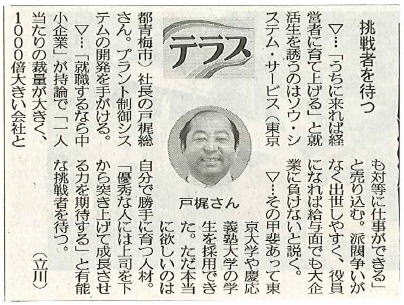 テラス
挑戦者を待つ
▽…「うちに来れば経
営者に育て上げる」と就
活生を誘うのはソウ・シ
ステム・サービス(東京
都青梅市)社長の戸梶総
さん。プラント制御シス
テムの開発を手がける。
▽…「就職するなら中
小企業」が持論で「一人
当たりの裁量が大きく、
1000倍大きい会社と
も対等に仕事ができる」
と売り込む。派閥争いが
なく出世しやすく、役員
になれば給与面でも大企
業に負けないと説く。
▽…その甲斐あって東
京大学や慶応
義塾大学の学
生を採用でき
た。ただ本当
に欲しいのは
自分で勝手に育つ人材。
「優秀な人には上司を下
から突き上げて成長させ
る力を期待する」と有能
な挑戦者を待つ。
(立川)
戸梶さん